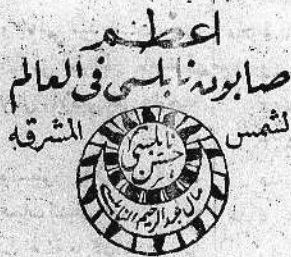 اعظم
صابون نابلسي في العالم
الشمس المشرقه
نابلسي
حسن
مال عبد الرحيم النابلسي